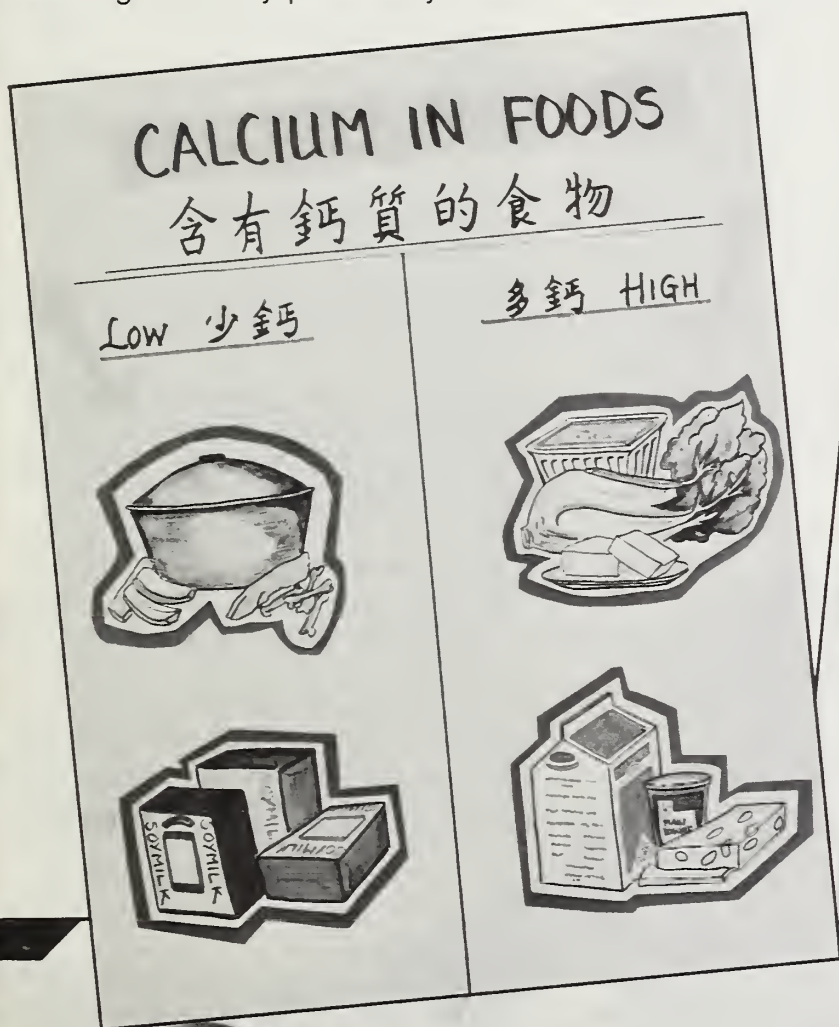 CALCIUM IN FOODS
含有鈣質的食物
LOW 少鈣
多鈣 HIGH
SOYMILK
SOYMILK
SOYMILK